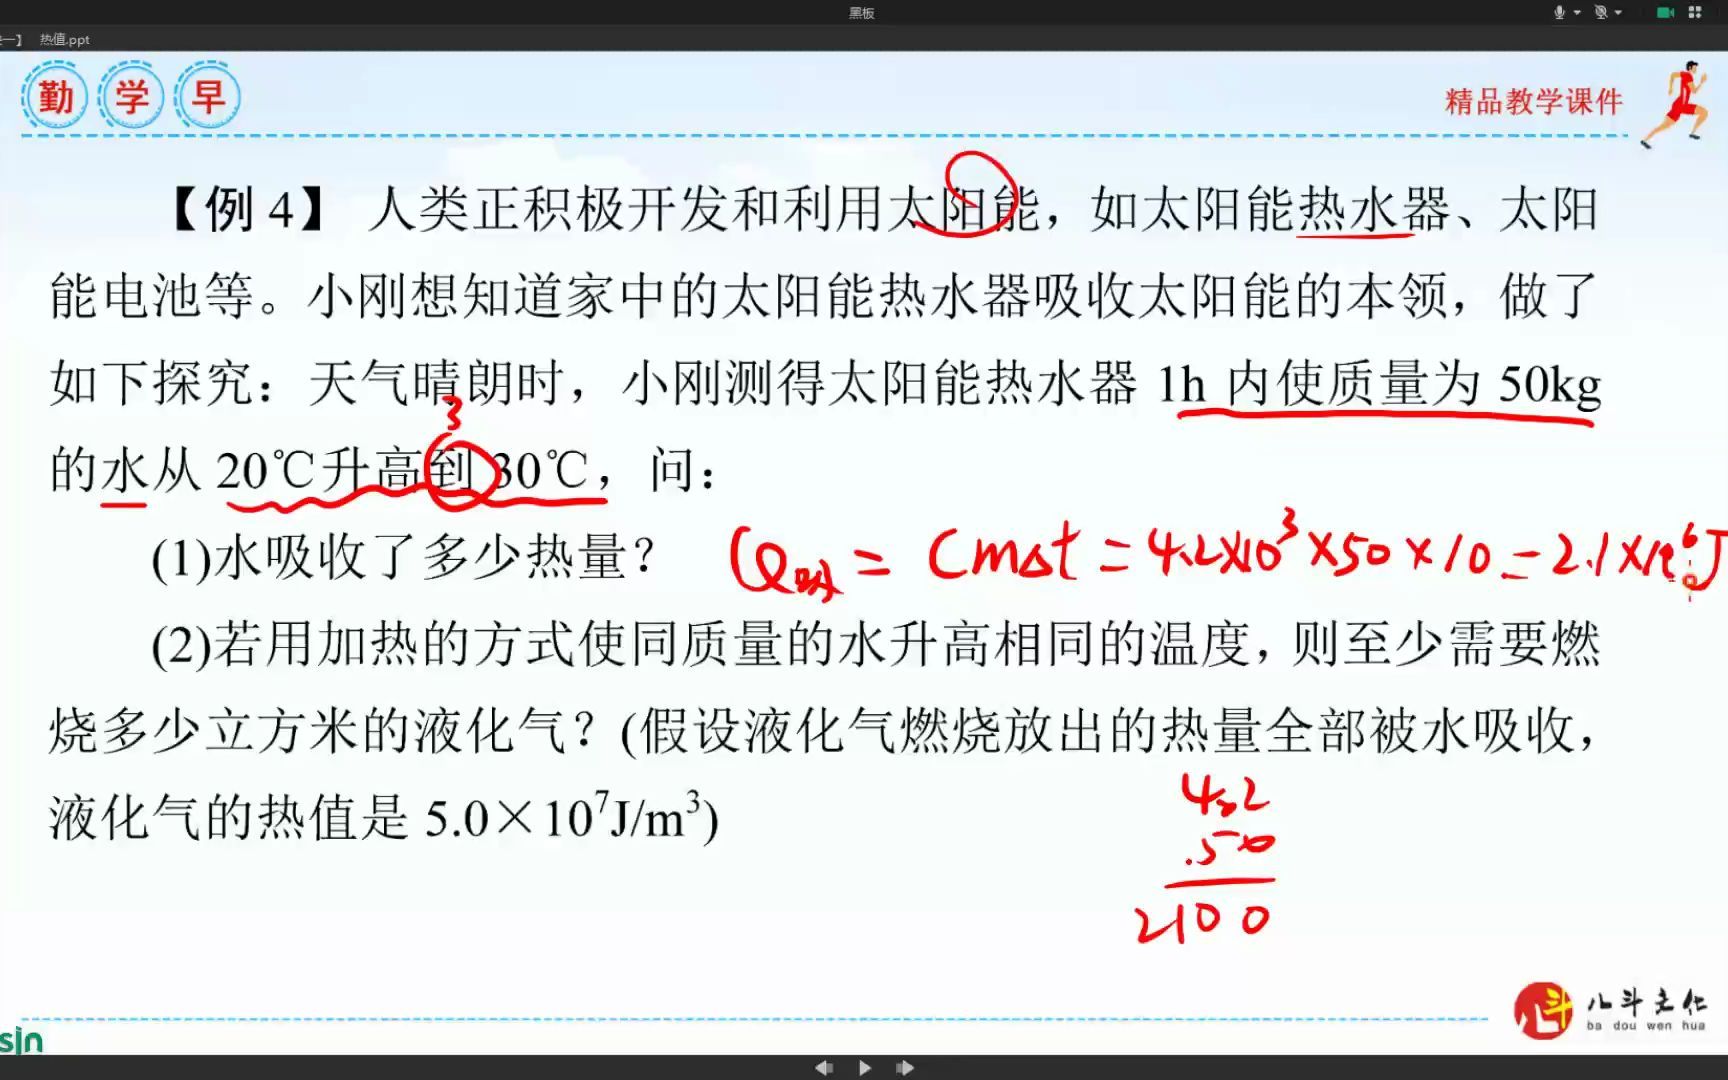 黑板
热值.ppt
勤 学 早
精品教学课件
【例 4】 人类正积极开发和利用太阳能，如太阳能热水器、太阳
能电池等。小刚想知道家中的太阳能热水器吸收太阳能的本领，做了
如下探究：天气晴朗时，小刚测得太阳能热水器 1h 内使质量为 50kg
3
的水从 20℃升高到 30℃，问：
(1)水吸收了多少热量？ Q吸 = cmΔt = 4.2×10³×50×10 = 2.1×10⁶J
(2)若用加热的方式使同质量的水升高相同的温度，则至少需要燃
烧多少立方米的液化气？(假设液化气燃烧放出的热量全部被水吸收，
液化气的热值是 5.0×10⁷J/m³)
4.2
50
2100
八斗文化
ba dou wen hua